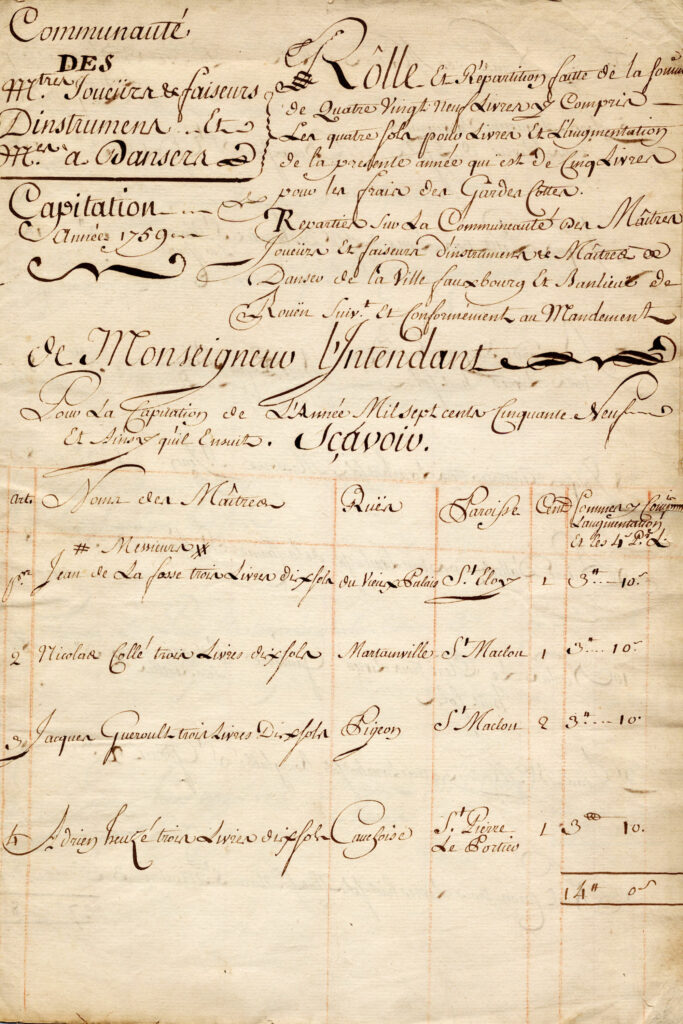 Communauté
DES
M.tres Joueürs & faiseurs
Dinstrumens .. Et
M.es a Dansers
Capitation
Année 1759
Rôlle Et Répartition faitte de la somme
de Quatre Vingt Neuf Livres y Compris
Les quatre sols pour Livres Et L'augmentation
de la presente année qui est de Cinq Livres
pour les frais des Gardes Cottes.
Repartier sur La Communeauté des Maîtres
Joueürs Et faiseurs d'instrumens & Maîtres de
Danses de la Ville fauxbourg Et Banlieuë de
Roüen Suiv.t Et Conformement au Mandement
de Monseigneur l'Intendant
Pour La Capitation de L'Année Mil sept cents Cinquante Neuf
Et Ainsy qu'il Ensuit. Sçavoir.
art. Noms des Maîtres Ruës Paroisse Sommes y
L'augmentation
Et les 4 s. P.r L.
Messieurs
1.er Jean de La fosse trois Livres dix sols du Vieux Palais S.t Eloy 1 3tt 10s
2 Nicolas Collé trois Livres dix sols Martainville S.t Maclou 1 3tt 10s
3 Jacques Gueroult trois Livres Dix sols Pigeon S.t Maclou 2 3tt 10s
4 Adrien heuzé trois Livres dix sols Cauchoise S.t Pierre
Le Portier 1 3tt 10s
14tt 0s